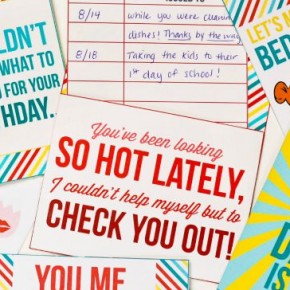 ISSUED TO
8/14 while you were cleaning
dishes! Thanks by the way
8/18 Taking the kids to their
1st day of school!
LDN'T
WHAT TO
FOR YOUR
HDAY.
LET'S
BED
You've been looking
SO HOT LATELY,
I couldn't help myself but to
CHECK YOU OUT!
YOU ME
D
IS